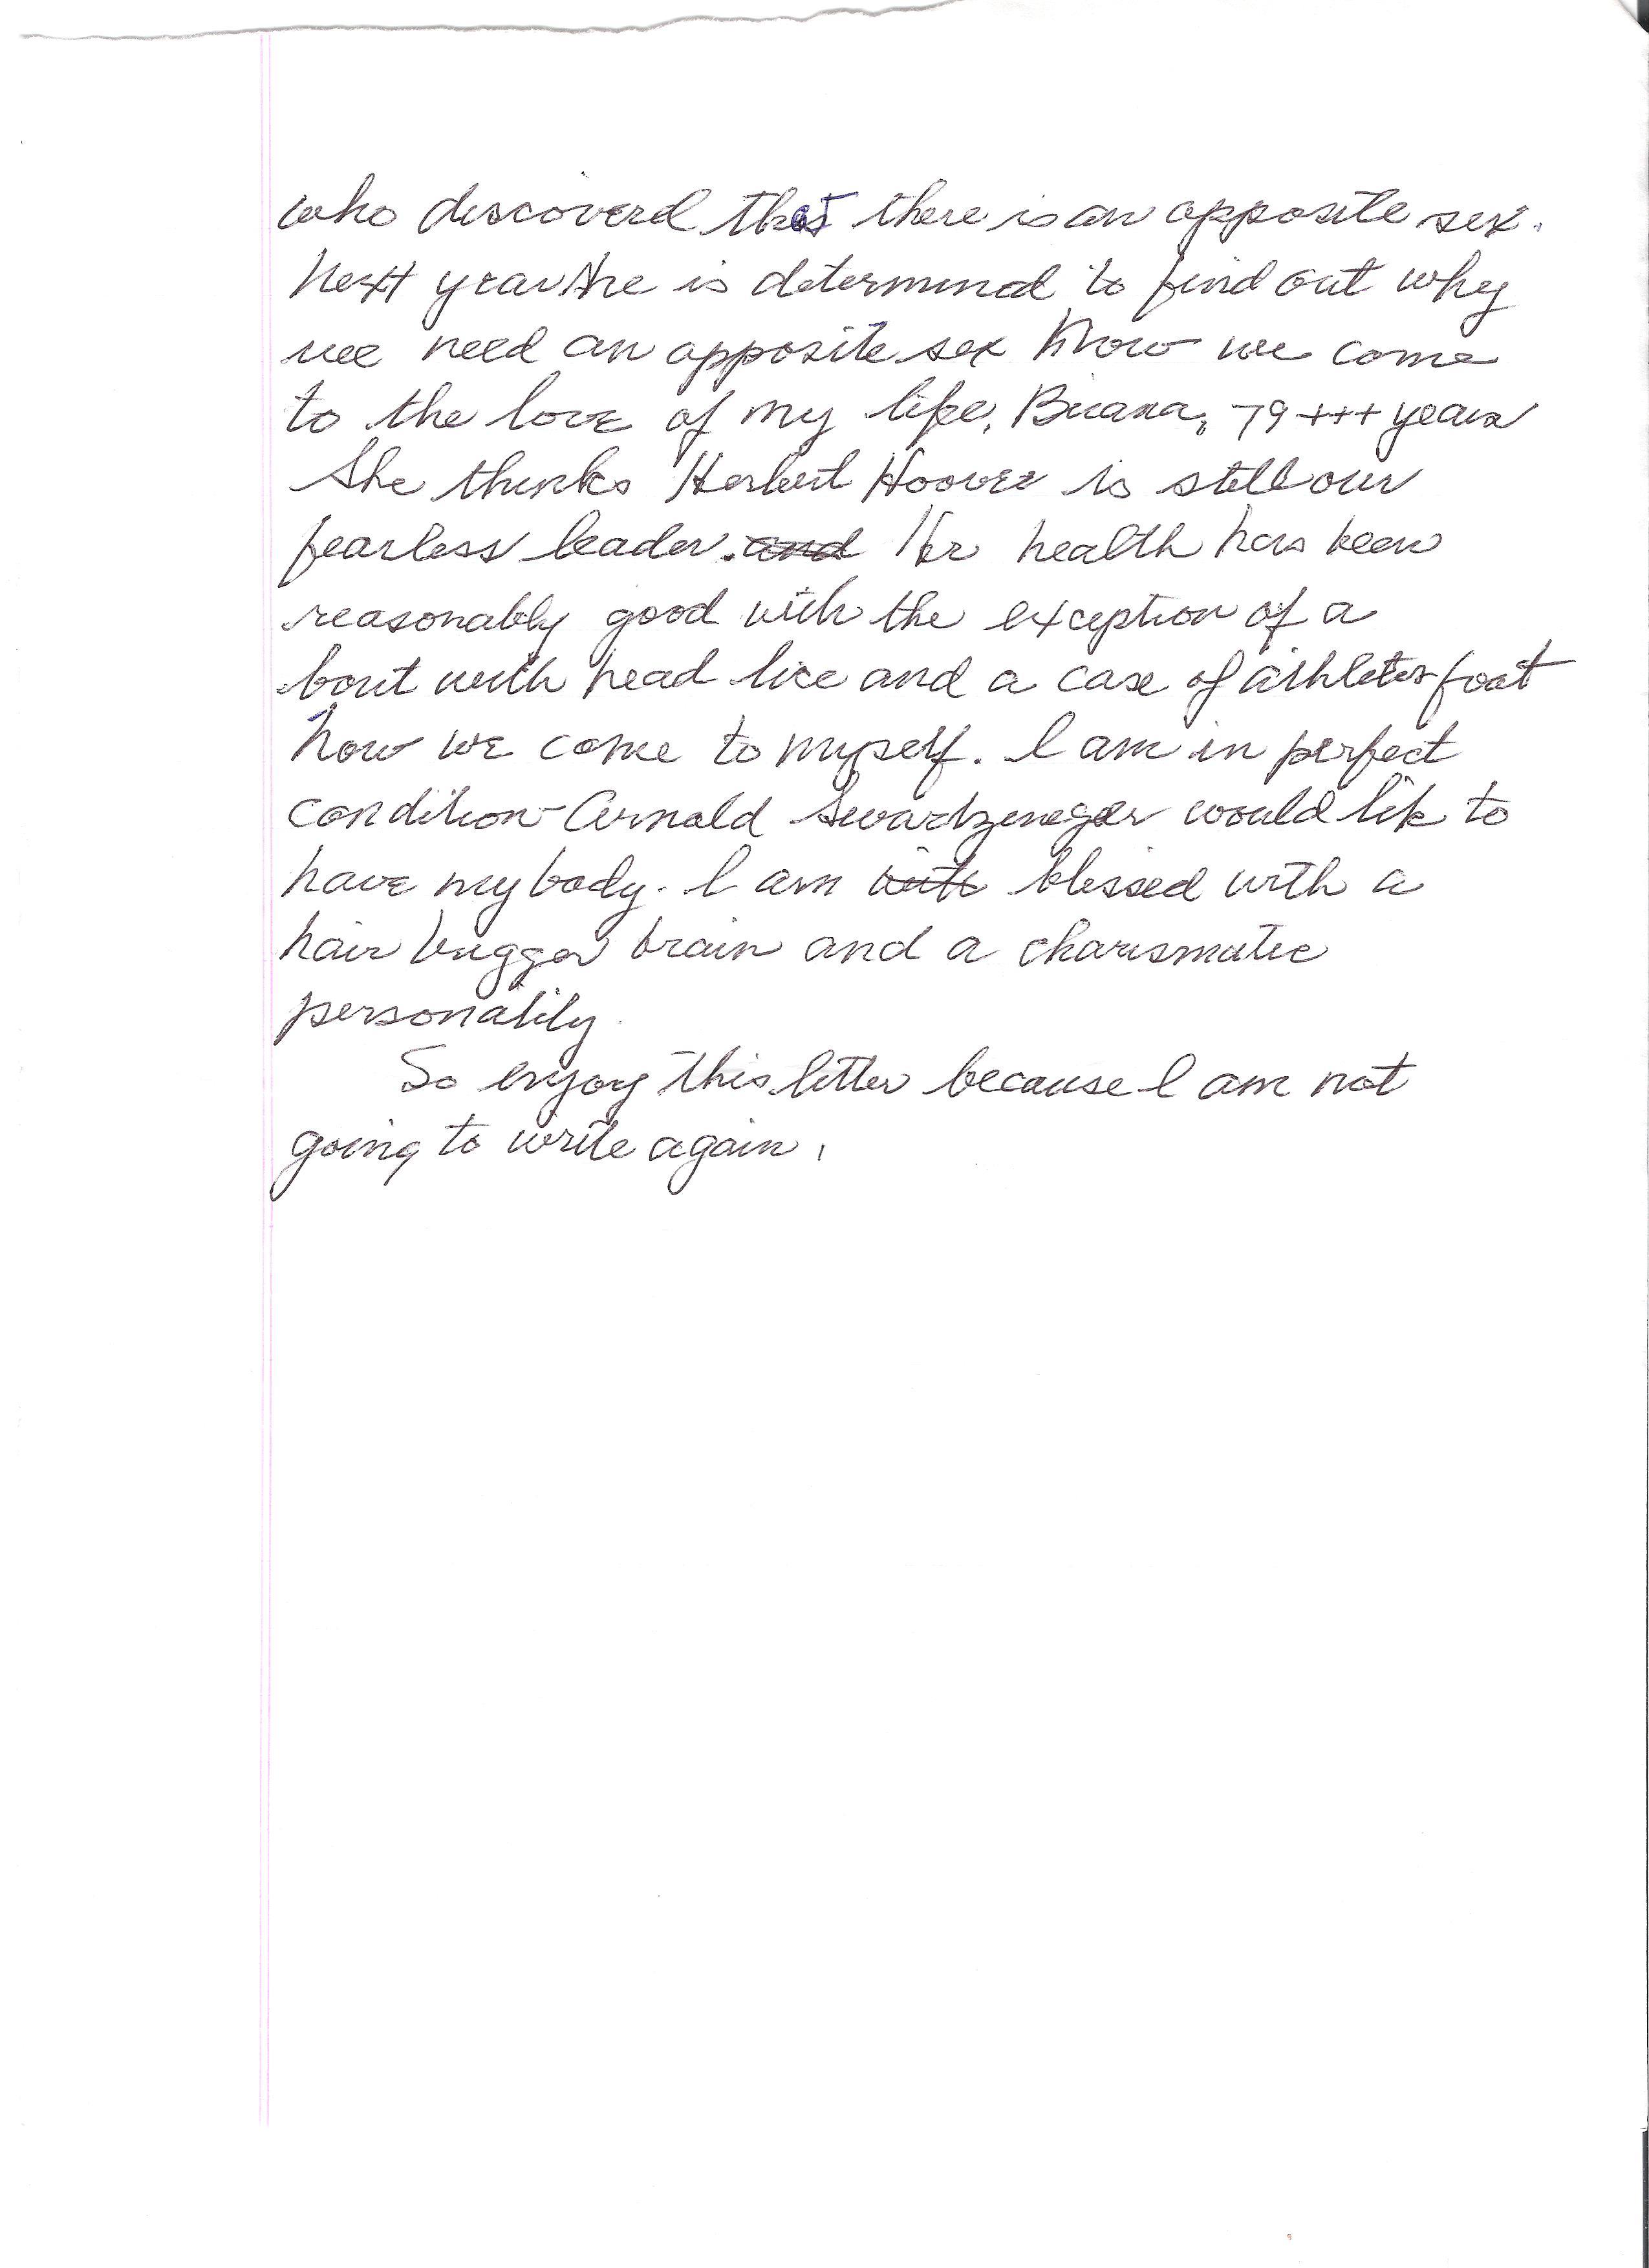 who discoverd that there is an opposite sex.
Next year she is determind to find out why
we need an opposite sex Now we come
to the love of my life, 79 +++ years
She thinks Herbert Hoover is still our
fearless leader. and Her health has been
reasonably good with the exception of a
bout with head lice and a case of athletes foot
Now we come to myself. I am in perfect
condition - Arnold Swartzeneger would lik to
have my body. I am with blessed with a
hair trigger brain and a charismatic
personality.
So enjoy this letter because I am not
going to write again.